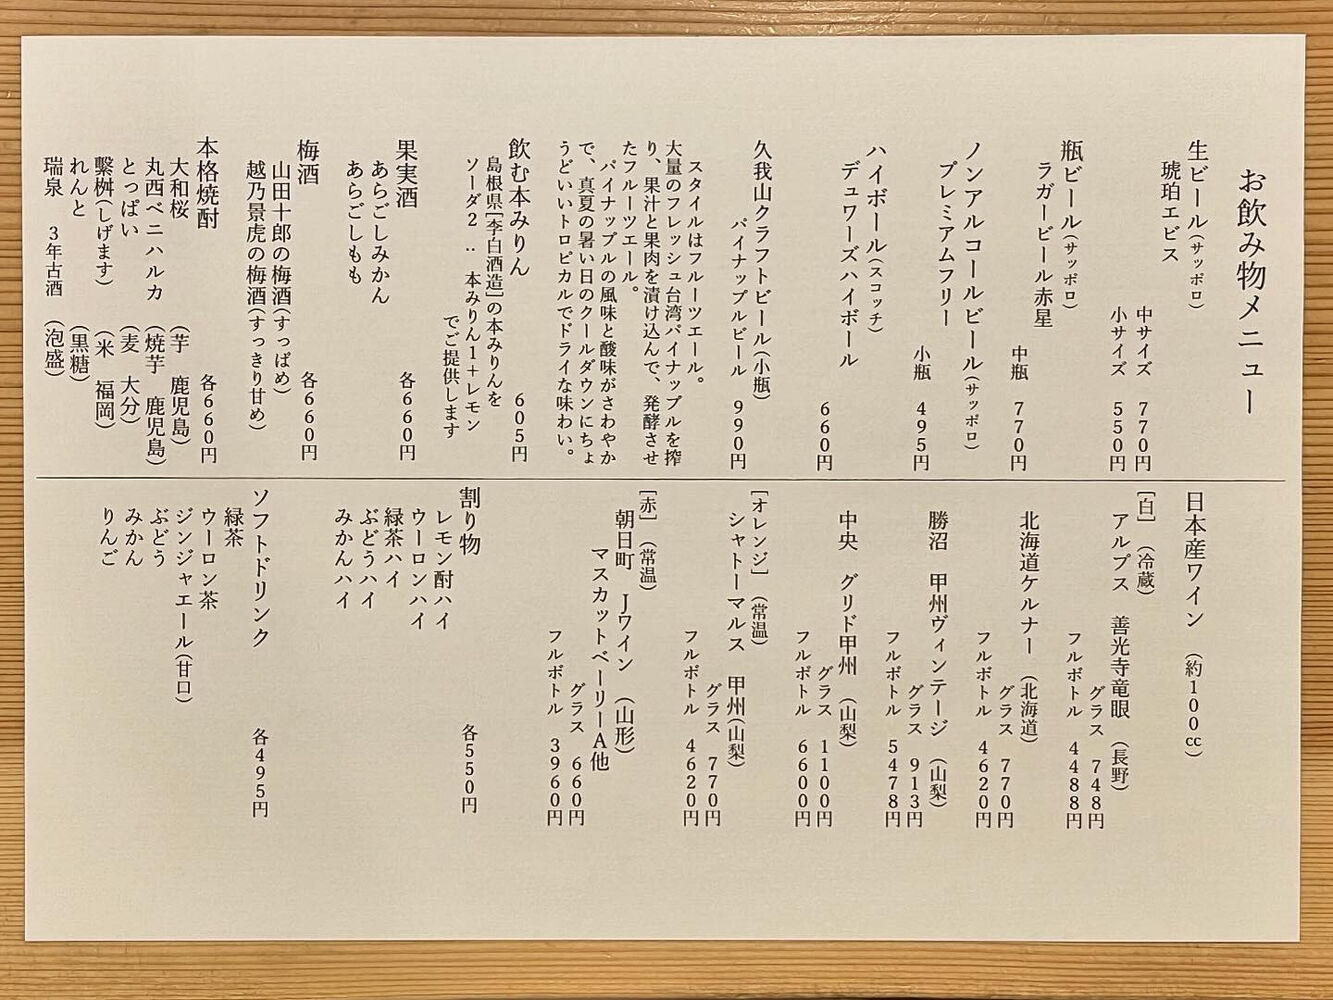 お飲み物メニュー
生ビール(サッポロ)
琥珀エビス
中サイズ 770円
小サイズ 550円
瓶ビール(サッポロ)
ラガービール赤星
中瓶 770円
ノンアルコールビール(サッポロ)
プレミアムフリー
小瓶 495円
ハイボール(スコッチ)
デュワーズハイボール
660円
久我山クラフトビール(小瓶)
パイナップルビール 990円
スタイルはフルーツエール。
大量のフレッシュ台湾パイナップルを搾
り、果汁と果肉を漬け込んで、発酵させ
たフルーツエール。
パイナップルの風味と酸味がさわやか
で、真夏の暑い日のクールダウンにちょ
うどいいトロピカルでドライな味わい。
飲む本みりん 605円
島根県[李白酒造]の本みりんを
ソーダ2:本みりん1+レモン
でご提供します
果実酒 各660円
あらごしみかん
あらごしもも
梅酒 各660円
山田十郎の梅酒(すっぱめ)
越乃景虎の梅酒(すっきり甘め)
本格焼酎 各660円
大和桜 (芋 鹿児島)
丸西ベニハルカ (焼芋 鹿児島)
とっぱい (麦 大分)
繫桝(しげます) (米 福岡)
れんと (黒糖)
瑞泉 3年古酒 (泡盛)
日本産ワイン (約100cc)
[白] (冷蔵)
アルプス 善光寺竜眼 (長野)
グラス 748円
フルボトル 4488円
北海道ケルナー (北海道)
グラス 770円
フルボトル 4620円
勝沼 甲州ヴィンテージ (山梨)
グラス 913円
フルボトル 5478円
中央 グリド甲州 (山梨)
グラス 1100円
フルボトル 6600円
[オレンジ] (常温)
シャトーマルス 甲州(山梨)
グラス 770円
フルボトル 4620円
[赤] (常温)
朝日町 Jワイン (山形)
マスカットベーリーA他
グラス 660円
フルボトル 3960円
割り物 各550円
レモン酎ハイ
ウーロンハイ
緑茶ハイ
ぶどうハイ
みかんハイ
ソフトドリンク 各495円
緑茶
ウーロン茶
ジンジャエール(甘口)
ぶどう
みかん
りんご